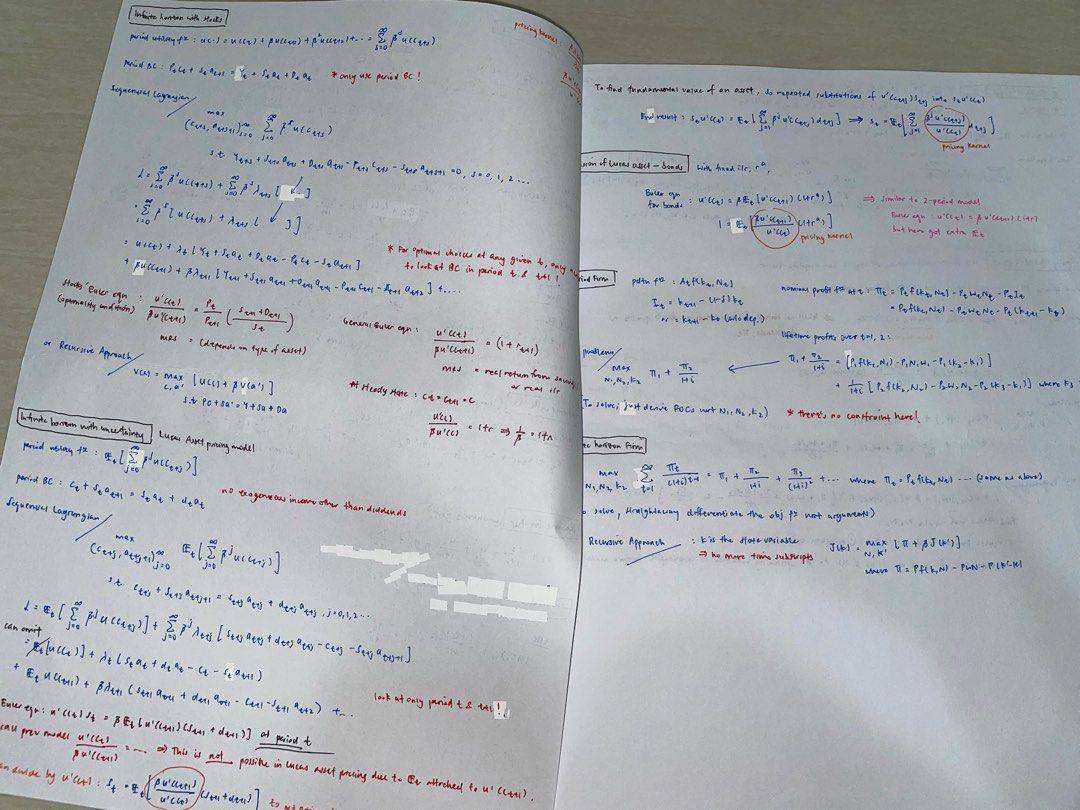 Infinite horizon with stocks
period utility fⁿ : u(·) = u(c_t) + βu(c_{t+1}) + β²u(c_{t+2}) + ... = Σ_{s=0}^∞ β^s u(c_{t+s})
period BC : P_t c_t + S_t a_{t+1} = Y_t + S_t a_t + D_t a_t * only use period BC !
Sequential Lagrangian
max
(c_{t+s}, a_{t+s+1})_{s=0}^∞ Σ_{s=0}^∞ β^s u(c_{t+s})
s.t. Y_{t+s} + S_{t+s} a_{t+s} + D_{t+s} a_{t+s} - P_{t+s} c_{t+s} - S_{t+s} a_{t+s+1} = 0, s = 0, 1, 2 ...
L = Σ_{s=0}^∞ β^s u(c_{t+s}) + Σ_{s=0}^∞ β^s λ_{t+s} [ ]
= Σ_{s=0}^∞ β^s [ u(c_{t+s}) + λ_{t+s} ( ) ]
= u(c_t) + λ_t [ Y_t + S_t a_t + D_t a_t - P_t c_t - S_t a_{t+1} ]
+ βu(c_{t+1}) + βλ_{t+1} [ Y_{t+1} + S_{t+1} a_{t+1} + D_{t+1} a_{t+1} - P_{t+1} c_{t+1} - S_{t+1} a_{t+2} ] + ....
* For optimal choices at any given t, only
to look at BC in period t & t+1 !
Stocks' Euler eqn : u'(c_t) / βu'(c_{t+1}) = P_t / P_{t+1} ( (S_{t+1} + D_{t+1}) / S_t )
(optimality condition)
MRS = (depends on type of asset)
General Euler eqn : u'(c_t) / βu'(c_{t+1}) = (1 + r_{t+1})
MRS = real return from saving
or real i/r
or Recursive Approach
V(a) = max_{c, a'} [ u(c) + βV(a') ]
s.t PC + Sa' = Y + Sa + Da
At steady state : c_t = c_{t+1} = c
u'(c) / βu'(c) = 1+r ⇒ 1/β = 1+r
Infinite horizon with uncertainty Lucas Asset pricing model
period utility fⁿ : 𝔼_t [ Σ_{j=0}^∞ β^j u(c_{t+j}) ]
period BC : c_t + s_t a_{t+1} = s_t a_t + d_t a_t no exogenous income other than dividends
Sequential Lagrangian
max
(c_{t+j}, a_{t+j+1})_{j=0}^∞ 𝔼_t [ Σ_{j=0}^∞ β^j u(c_{t+j}) ]
s.t c_{t+j} + s_{t+j} a_{t+j+1} = s_{t+j} a_{t+j} + d_{t+j} a_{t+j}, j = 0,1,2 ...
L = 𝔼_t [ Σ_{j=0}^∞ β^j u(c_{t+j}) ] + Σ_{j=0}^∞ β^j λ_{t+j} [ s_{t+j} a_{t+j} + d_{t+j} a_{t+j} - c_{t+j} - s_{t+j} a_{t+j+1} ]
can omit
= 𝔼_t [ u(c_t) ] + λ_t ( s_t a_t + d_t a_t - c_t - s_t a_{t+1} )
+ 𝔼_t u(c_{t+1}) + βλ_{t+1} ( s_{t+1} a_{t+1} + d_{t+1} a_{t+1} - c_{t+1} - s_{t+1} a_{t+2} ) + ...
look at only period t & t+1 !
Euler eqn : u'(c_t) s_t = β𝔼_t [ u'(c_{t+1}) (s_{t+1} + d_{t+1}) ] at period t
prev model u'(c_t) / βu'(c_{t+1}) = .... ⇒ This is not possible in Lucas asset pricing due to 𝔼_t attached to u'(c_{t+1}).
divide by u'(c_t) : s_t = 𝔼_t [ βu'(c_{t+1}) / u'(c_t) (s_{t+1} + d_{t+1}) ] to
pricing kernel :
To find fundamental value of an asset, do repeated substitutions of u'(c_{t+j}) s_{t+j} into s_t u'(c_t)
End result : s_t u'(c_t) = 𝔼_t [ Σ_{j=1}^∞ β^j u'(c_{t+j}) d_{t+j} ] ⇒ s_t = 𝔼_t [ Σ_{j=1}^∞ β^j u'(c_{t+j}) / u'(c_t) d_{t+j} ]
pricing kernel
of Lucas asset - bonds with fixed i/r, r^a,
Euler eqn
for bonds : u'(c_t) = β𝔼_t [ u'(c_{t+1}) (1+r^a) ] ⇒ similar to 2-period model
Euler eqn : u'(c_t) = βu'(c_{t+1}) (1+r)
but here got extra 𝔼_t
1 = 𝔼_t [ βu'(c_{t+1}) / u'(c_t) (1+r^a) ]
pricing kernel
Firm
pdtn fⁿ : A_t f(k_t, N_t)
I_t = k_{t+1} - (1-δ) k_t
or : k_{t+1} - k_t (w/o dep.)
nominal profit fⁿ at t : Π_t = P_t f(k_t, N_t) - P_t w_t N_t - P_t I_t
= P_t f(k_t, N_t) - P_t w_t N_t - P_t (k_{t+1} - k_t)
lifetime profits over t=1, 2 :
problem
max_{N₁, N₂, K₂} Π₁ + Π₂/(1+i)
Π₁ + Π₂/(1+i) = [ P₁f(k₁, N₁) - P₁W₁N₁ - P₁(k₂-k₁) ]
+ 1/(1+i) [ P₂f(k₂, N₂) - P₂W₂N₂ - P₂(k₃-k₂) ] where k₃
To solve, just derive FOCs wrt N₁, N₂, k₂) * there's no constraint here!
horizon Firm
max_{N₁, N₂, K₂} Σ_{t=1}^∞ Π_t / (1+i)^{t-1} = Π₁ + Π₂/(1+i) + Π₃/(1+i)² + ... where Π_t = P_t f(k_t, N_t) ---- (same as above)
solve, straightaway differentiate the obj fⁿ wrt arguments)
Recursive Approach : k is the state variable
⇒ no more time subscripts
J(k) = max_{N, K'} [ Π + βJ(k') ]
where Π = Pf(k, N) - PWN - P(k'-k)